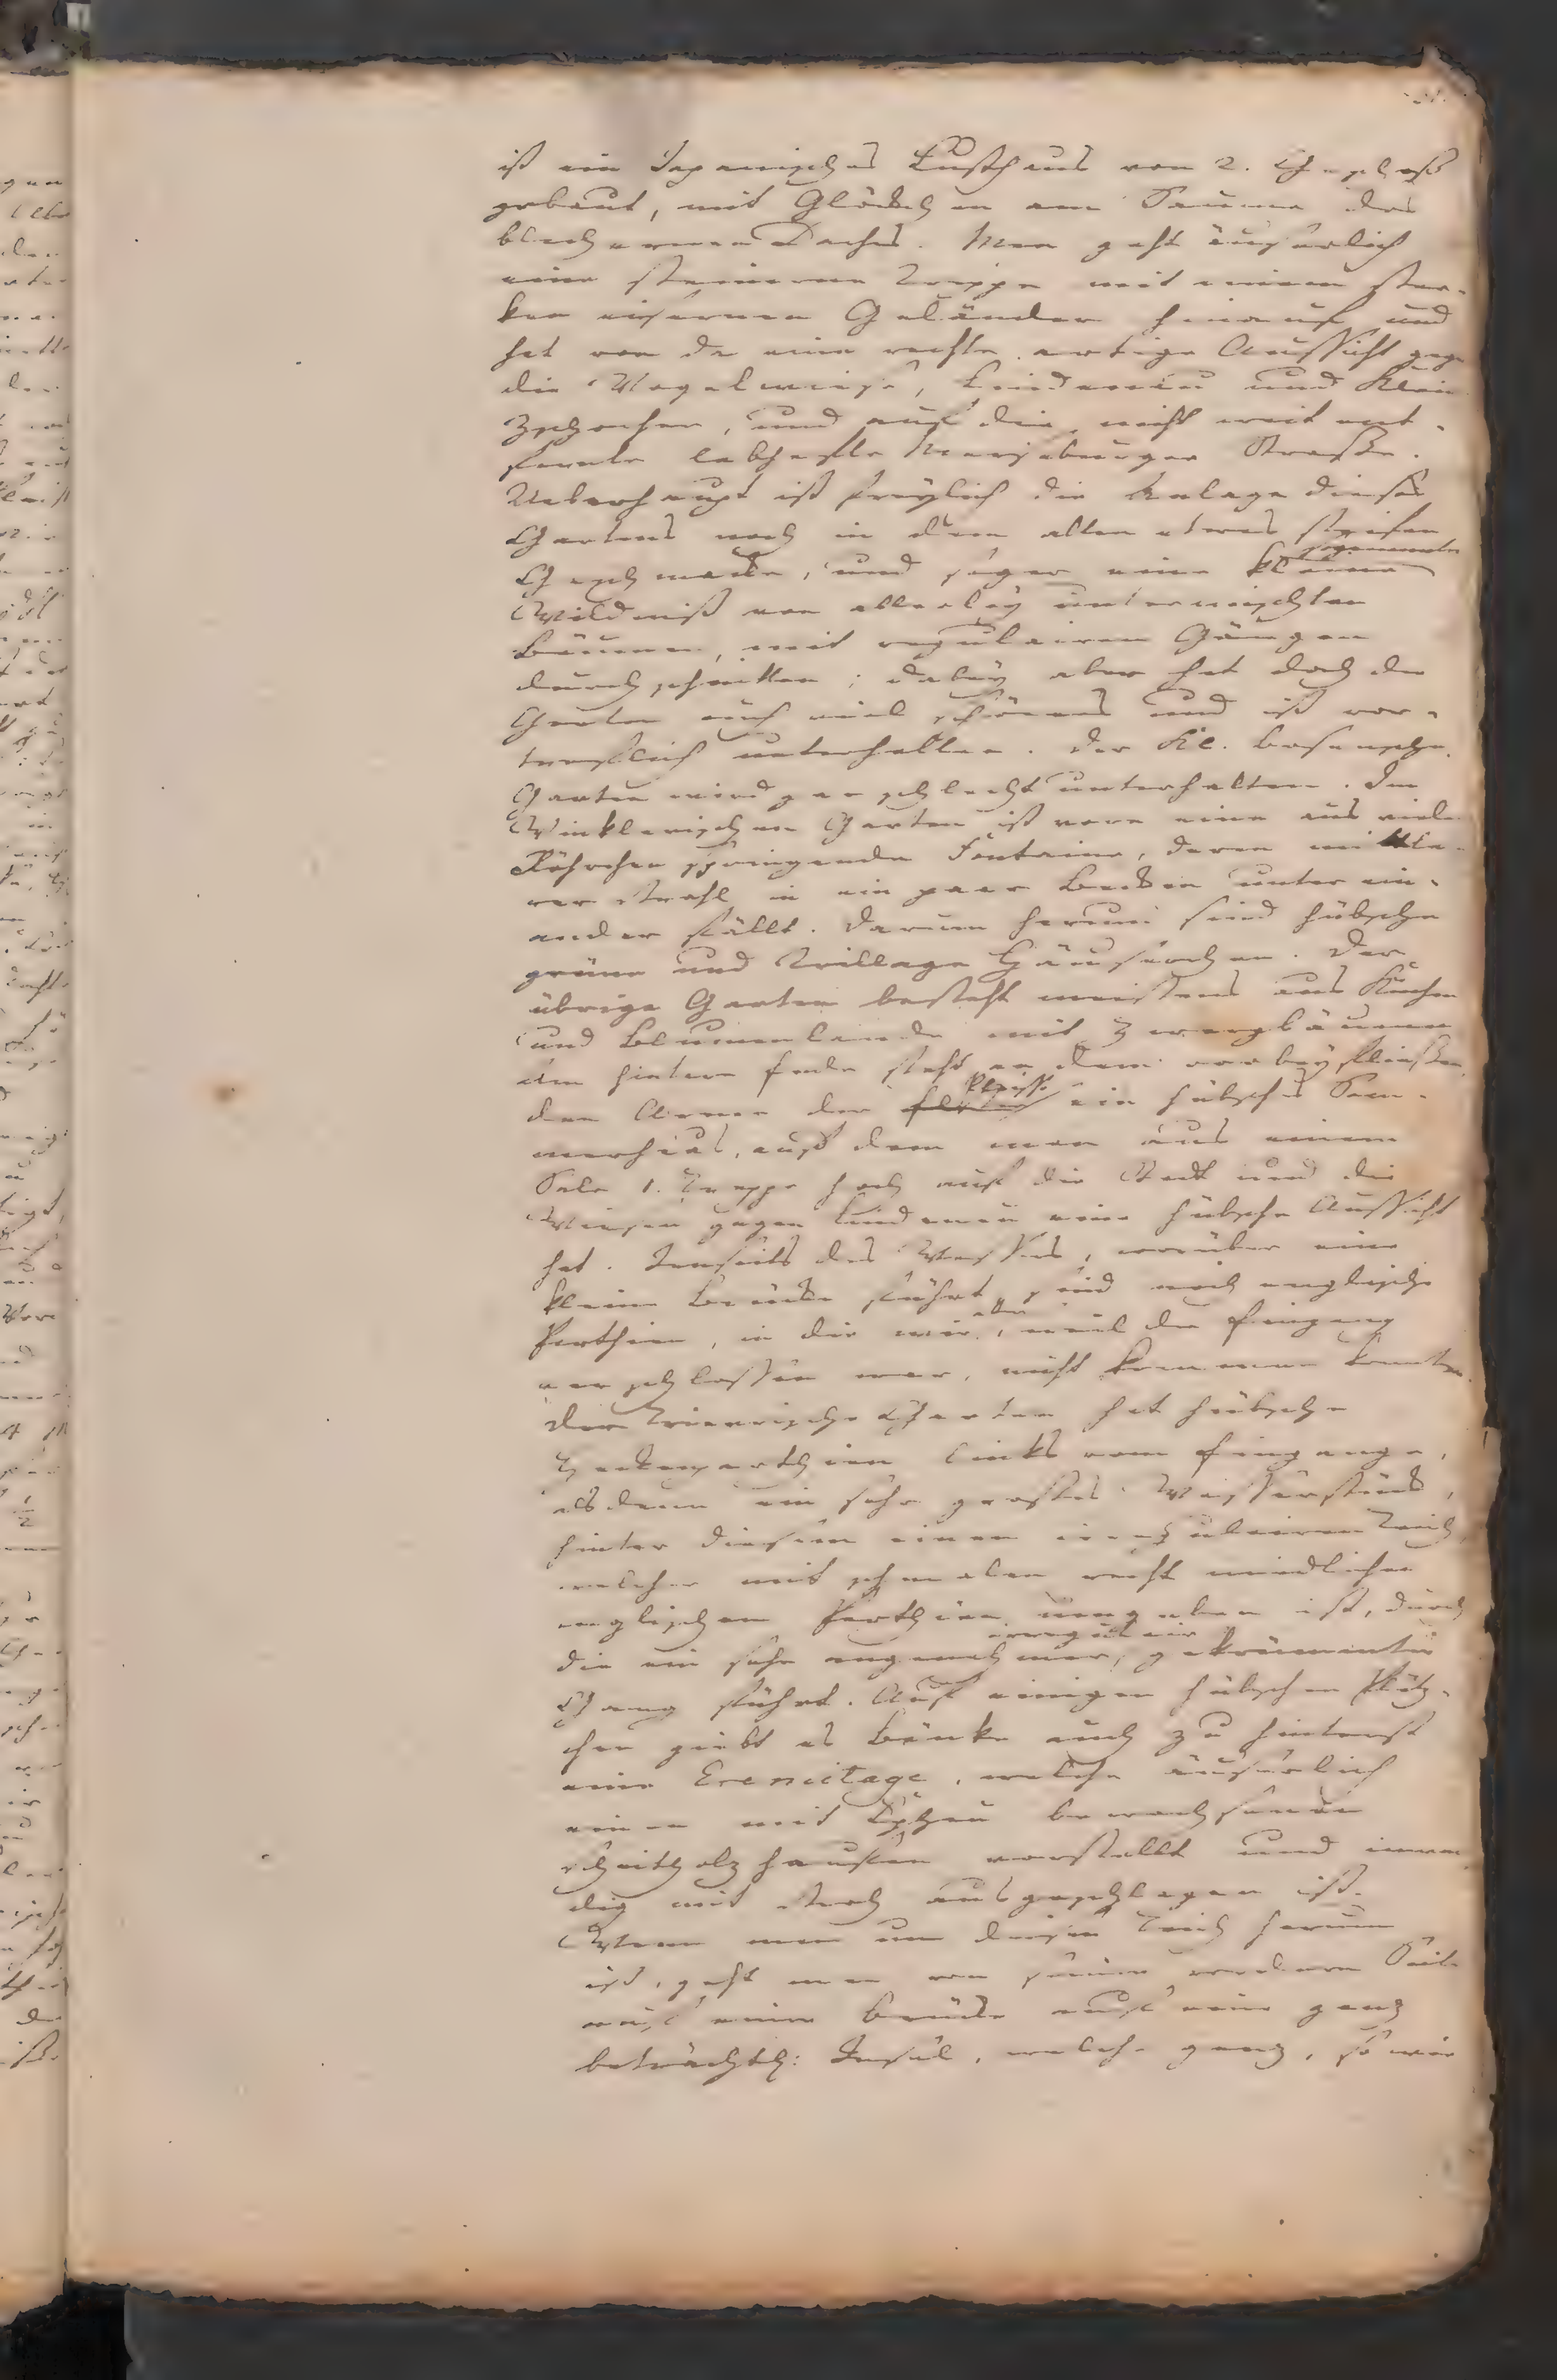 ist ein Japanisches Lusthaus von 2. Geschoß
gebaut, mit Glöckchen am Saume des
blechernen Daches. Man geht äuserlich
eine steinerne Treppe mit einem star-
ken eisernen Geländer hinauf und
hat von da eine rechte artige Aussicht gege
die Vogelwiese, Lindenau und Klein
Zschocher, und auf die nicht weit ent-
fernte lebhafte Merseburger Strasse.
Ueberhaupt ist freylich die Anlage dieses
Gartens noch in dem alten etwas steifen
Geschmacke, und sogar eine kleine sogenannte
Wildniß von allerley untermischten
Bäumen, mit regulairen Gängen
durchschnitten; dabey aber hat doch der
Garten auch viel schönes und ist vor-
treflich unterhalten. Der Kl. Bosensche
Garten wird gar schlecht unterhalten. Im
Winklerischen Garten ist vorn eine aus viele
Röhrchen springende Fontaine, deren mittle-
rer Strahl in ein paar Becken unter ein-
ander fällt. Darum herum sind hübsche
grüne und Trillage Häuserchen. Der
übrige Garten besteht meistens aus Küchen
und Blumenlande mit Zwergbäumen
Am hintern Ende steht an dem vorbeyfliessen
den Arme der Elster Pleisse ein hübsches Som-
merhaus, auß dem man aus einem
Sale 1. Treppe hoch auf die Stadt und die
Wiesen gegen Lindenau eine hübsche Aussicht
hat. Jenseits des Wassers, worüber eine
kleine Brücke führt, sind noch englische
Parthien, in die wir aber, weil der Eingang
verschlossen war, nicht kommen konnten.
Der Triersche Garten hat hübsche
Heckenparthien links vom Eingange,
alsdenn ein sehr grosses Wasserstück,
hinter diesem einen irregulairen Teich
welcher mit schmalen recht niedlichen
englischen Parthien umgeben ist, durch
die ein sehr angenehmer, irregulair gekrümmter
Gang führt. Auf einigen hübschen Plätz-
chen giebt es Bänke auch zu hinterst
eine Eremitage, welche äuserlich
einen mit Epheu bewachsenen
Scheitholzhaufen vorstellt und inwen
dig mit Stroh ausgeschlagen ist.
Wenn man um diesen Teich herum
ist, geht man von seiner vordern Seite
auf einer Brücke auf eine ganz
beträchtl: Insul, welche ganz, so wie